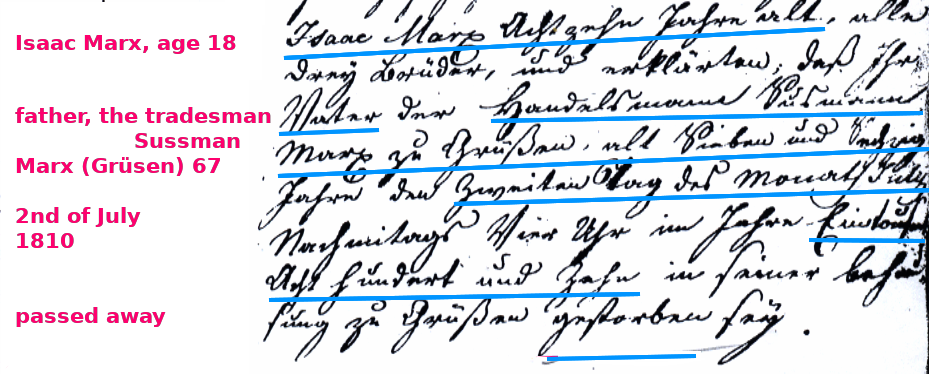 Isaac Marx, age 18
father, the tradesman
Sussman
Marx (Grüsen) 67
2nd of July
1810
passed away
Isaac Marx Achtzehn Jahre alt, alle
drey Brüder, und erklärten, daß Ihr
Vater der Handelsmann Susmann
Marx zu Grüßen, alt Sieben und Sechzig
Jahre den Zweiten Tag des Monats July
Nachmitags Vier Uhr im Jahre Eintausend
Acht hundert und Zehn in seiner behau
sung zu Grüßen gestorben sey.